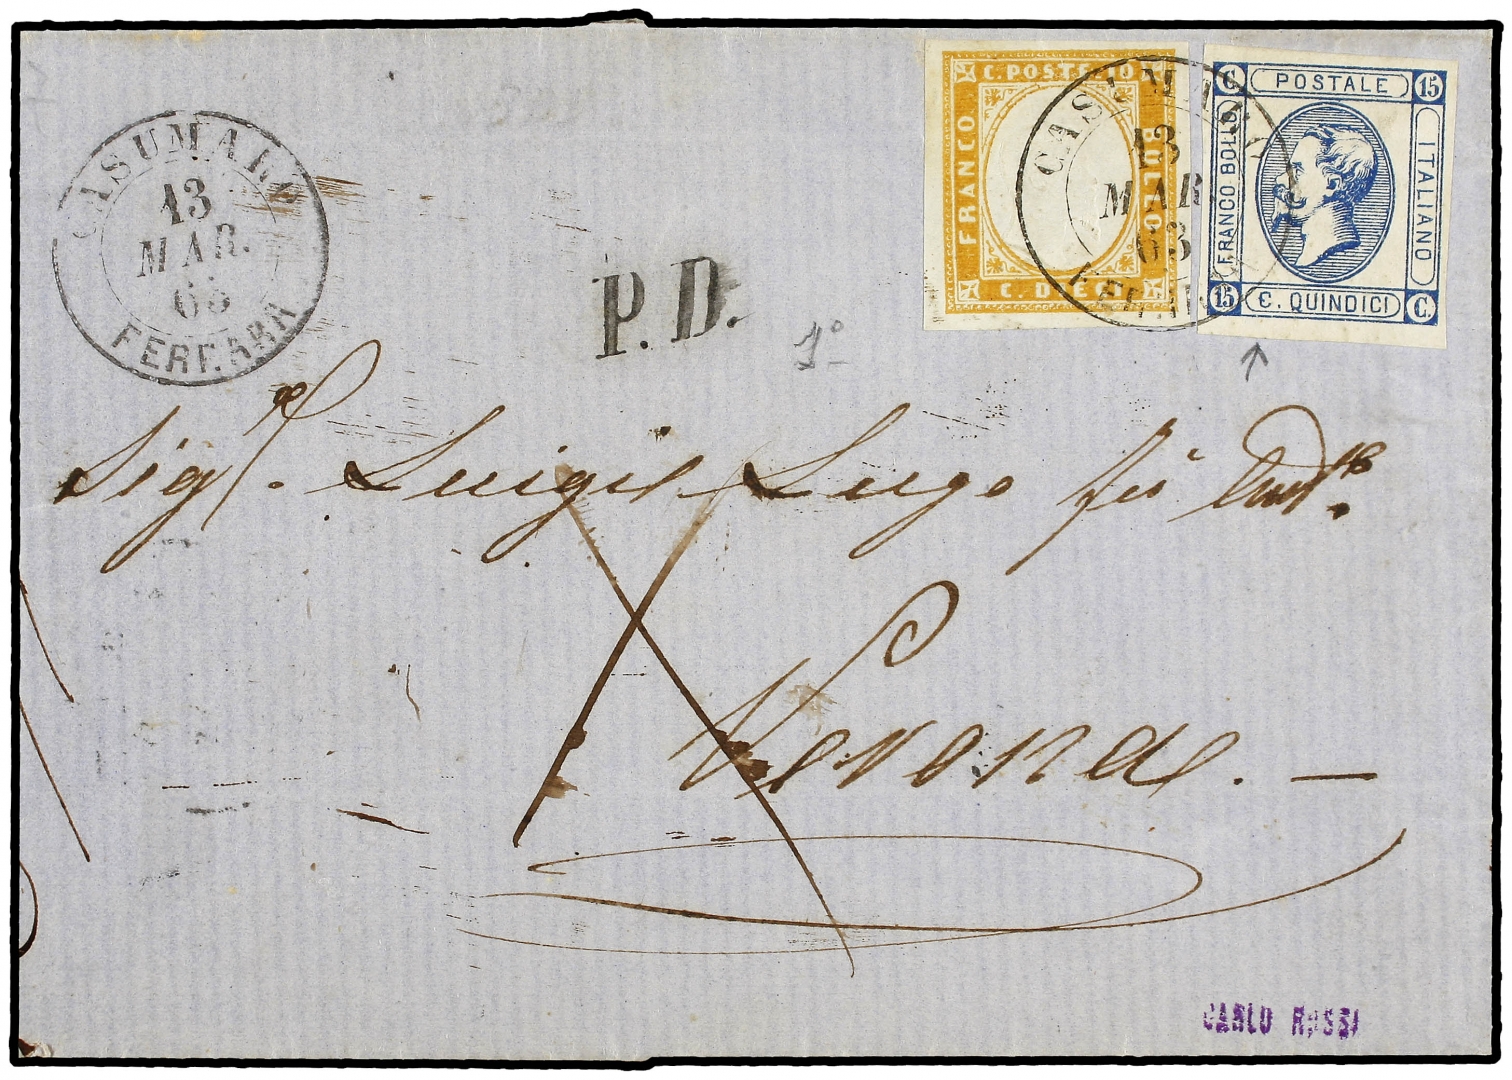 CASUMARA
13
MAR.
63
FERRARA
P.D.
1º
C. POSTE 10
FRANCO
BOLLO
C. DIECI
CASUMARA
13
MAR.
63
FERRARA
C. POSTALE 15
FRANCO BOLLO
ITALIANO
15 C. QUINDICI C.
Sigr. Luigi Lugo fù
Verona. —
CARLO ROSSI